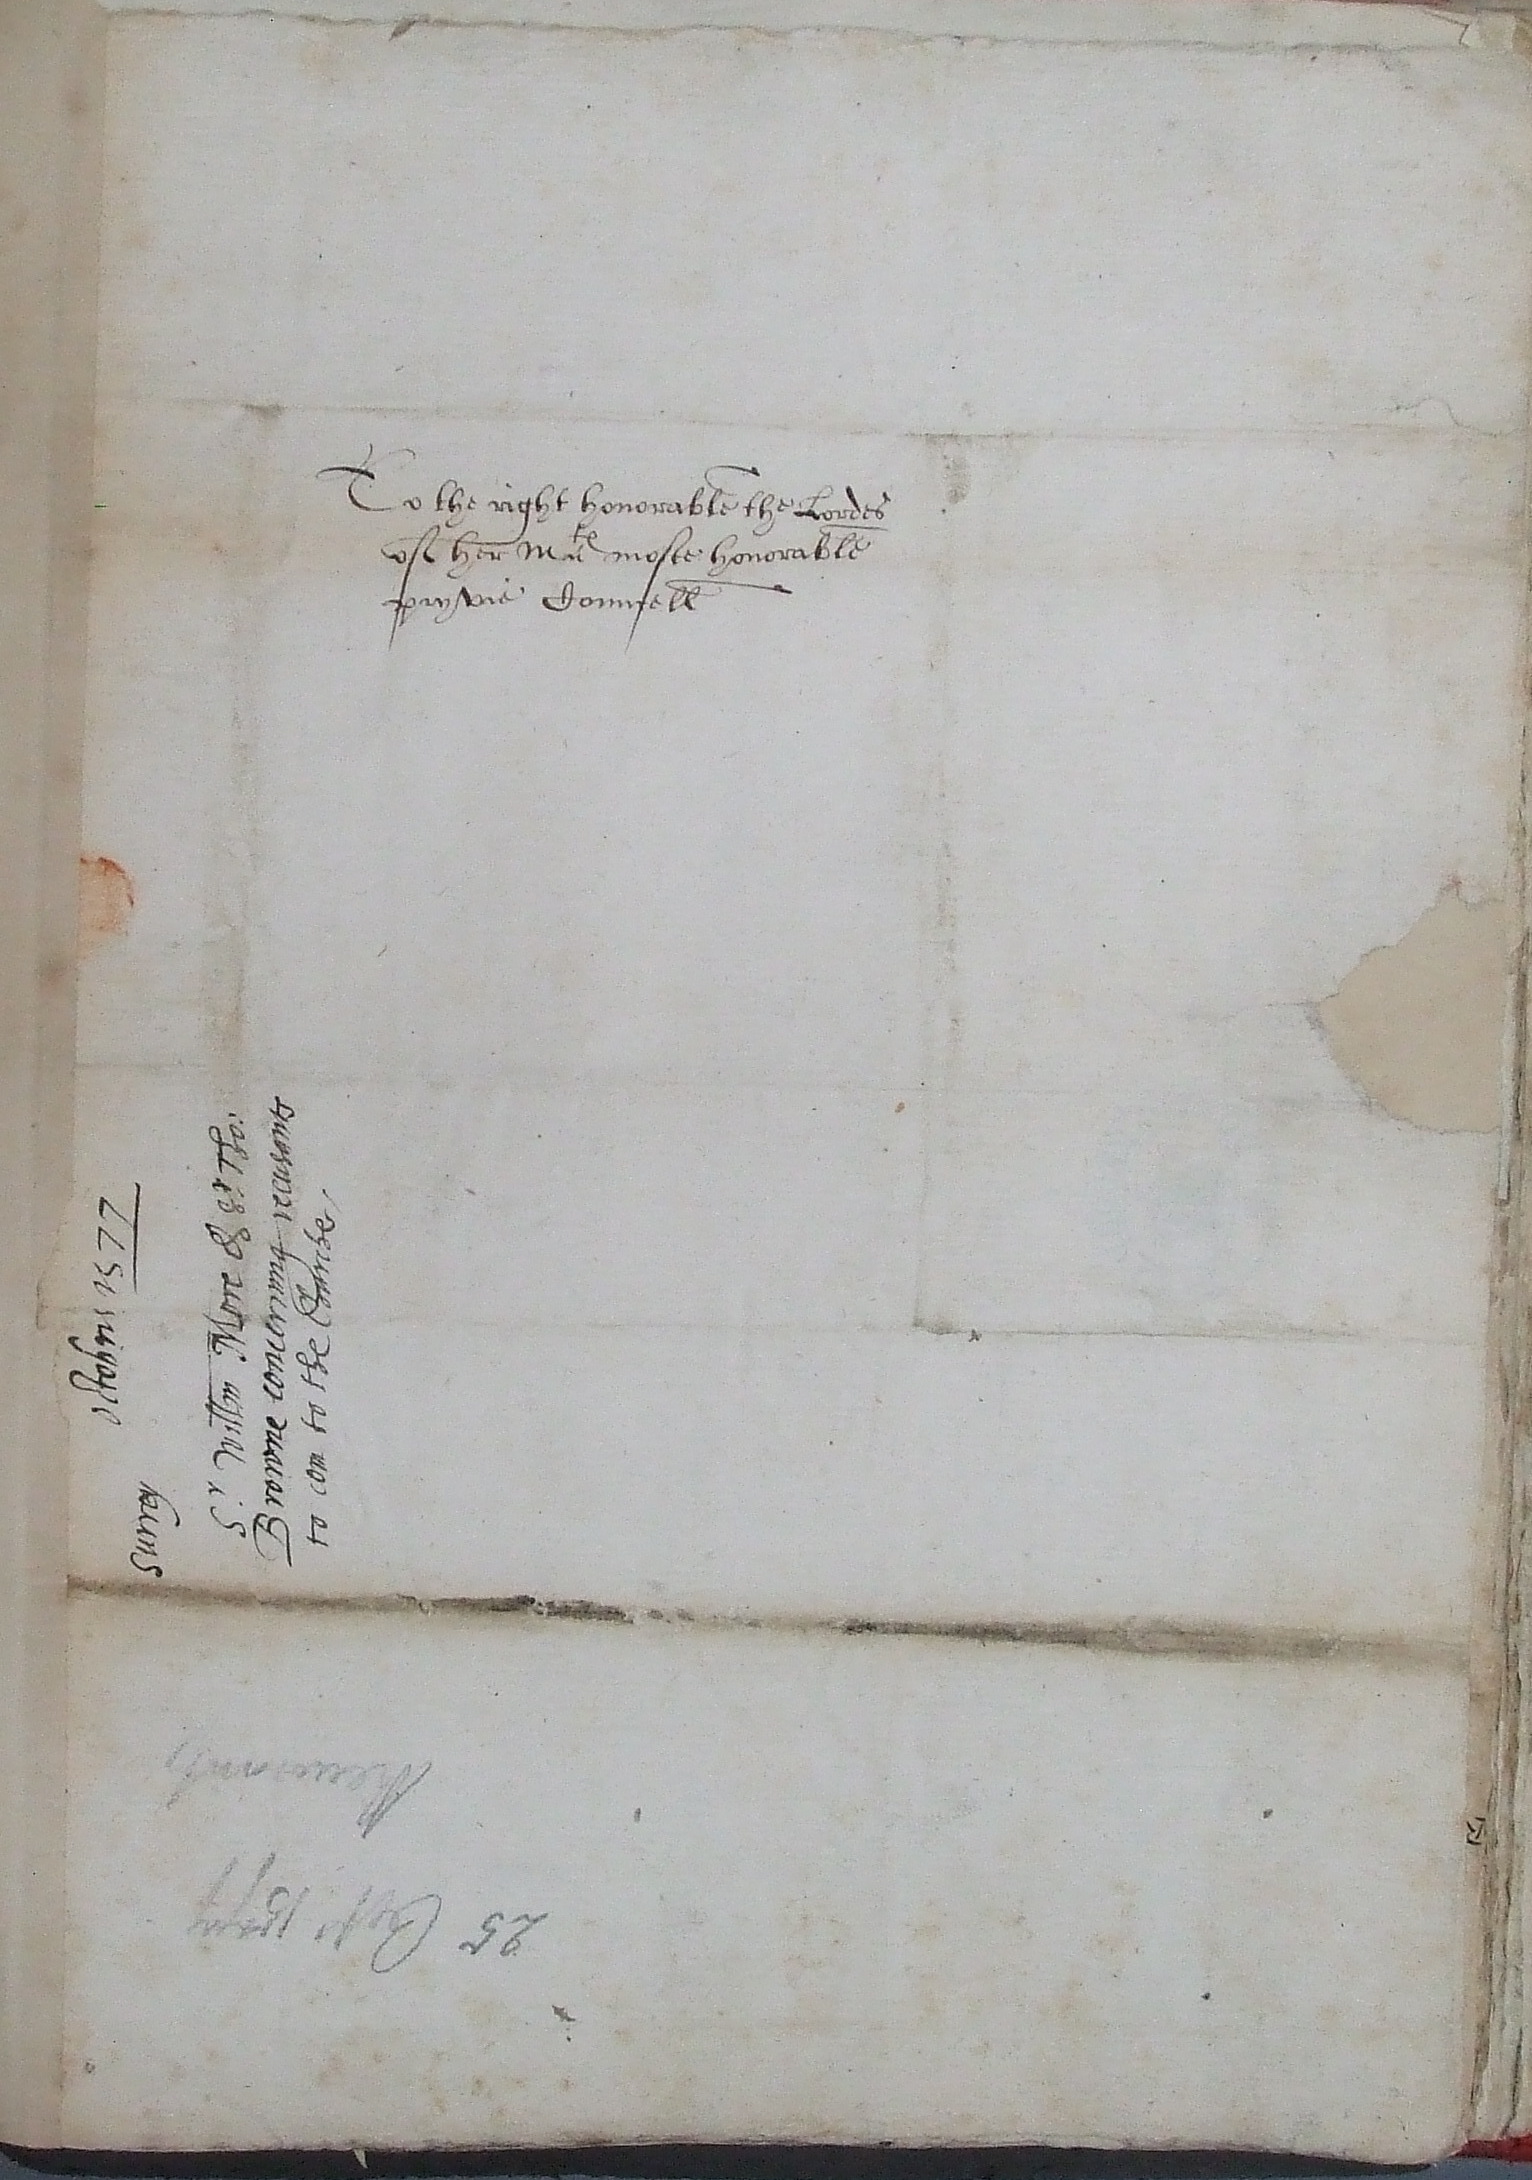 To the right honorable the Lordes
of her Ma^tes moste honorable
pryvie Counsell
Octobris 1577
Surrey
S^r Willm More & S^r Tho:
Browne concerning recusants
to com to the Churche,
Recusants
25 Oct^r 1577